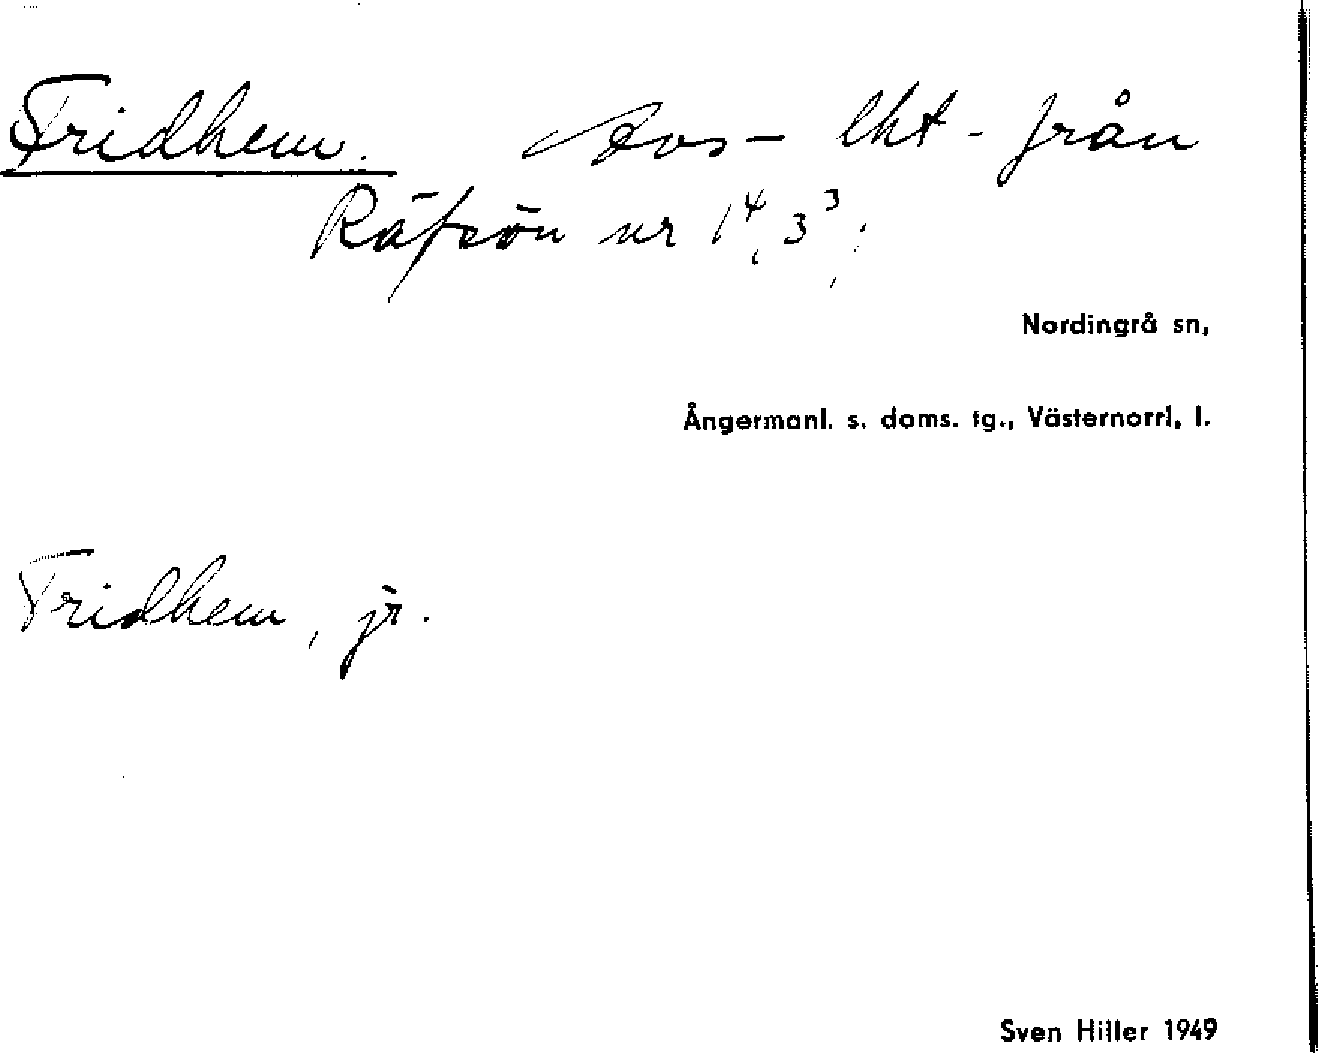 Fridhem. Avs- lht - från
Räfsön nr 1⁴, 3³,
Nordingrå sn,
Ångermanl. s. doms. tg., Västernorrl. l.
Fridhem, jr.
Sven Hiller 1949